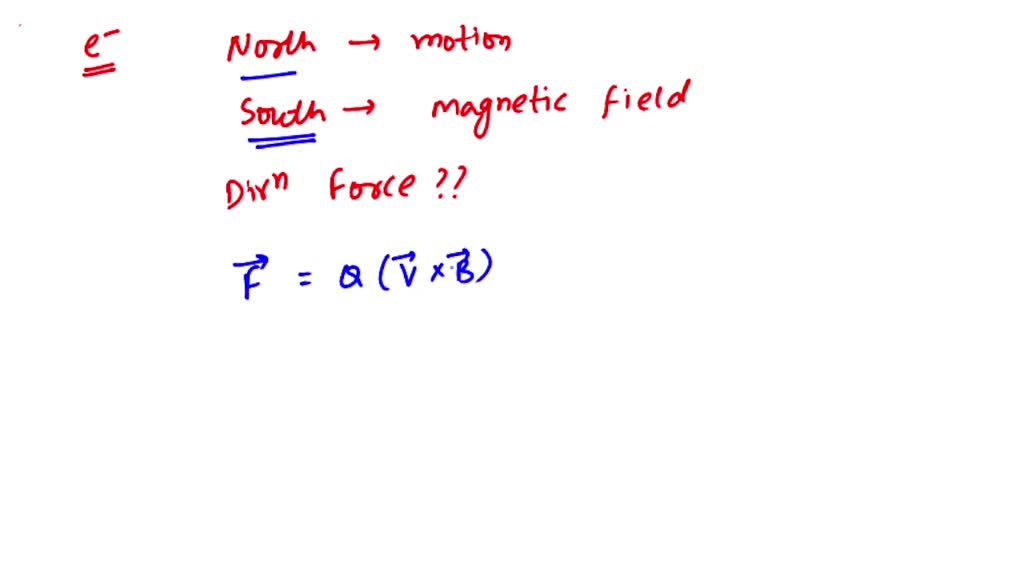 e⁻ North → motion
South → magnetic field
Dirⁿ Force ??
F⃗ = Q (V⃗ × B⃗)